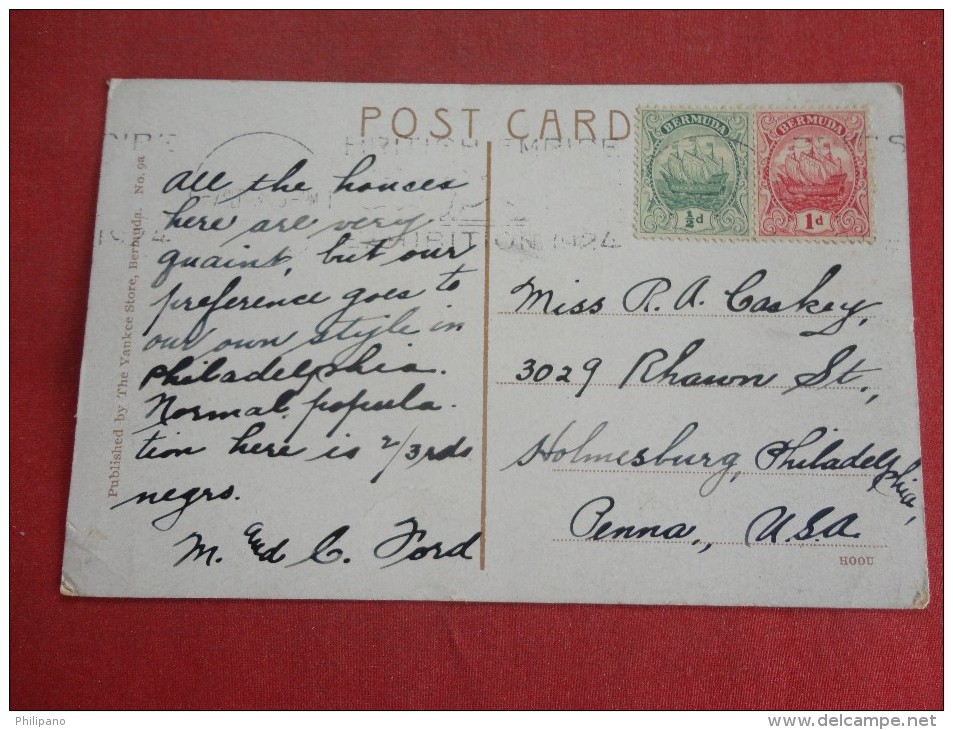 POST CARD
BERMUDA
½d
BERMUDA
1d
EMPIRE
EXHIBITION 1924
All the houses
here are very
quaint, but our
preference goes to
our own style in
Philadelphia.
Normal popula-
tion here is 2/3rds
negro.
M. and C. Ford
Miss R. A. Caskey,
3029 Rhawn St.,
Holmesburg, Philadelphia,
Penna., U.S.A.
HOOU
Published by The Yankee Store, Bermuda. No. 9a
Philipano
www.delcampe.net